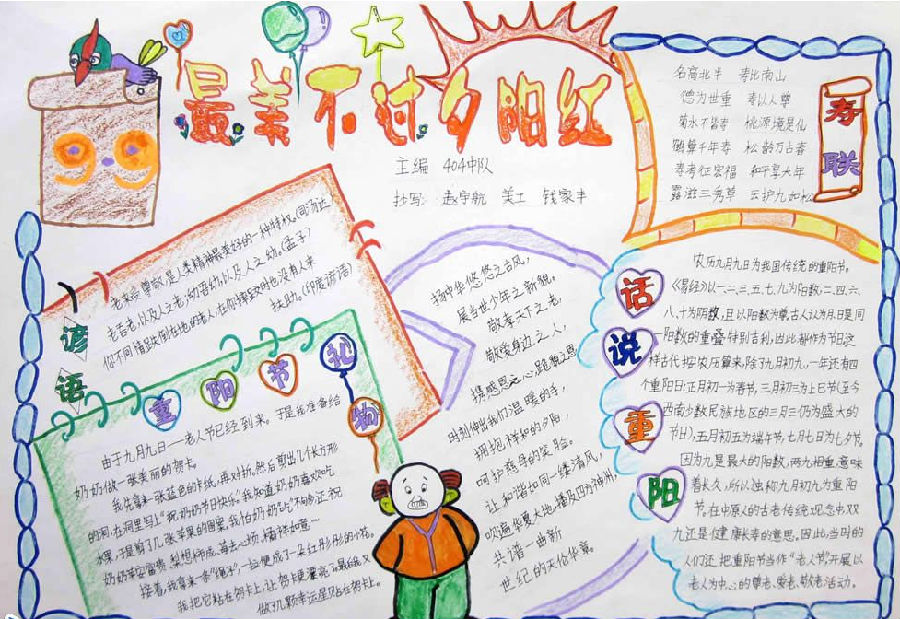 最美不过夕阳红
主编 404中队
抄写: 赵宇航 美工 钱家丰
99
寿联
名高北斗 寿比南山
德为世重 寿以人尊
菊水不皆寿 桃源境是仙
鹤算千年寿 松龄万古春
寿考征宏福 和平享大年
露滋三秀草 云护九如松
谚语
老来受尊敬,是人类精神最美好的一种特权。(司汤达)
老吾老,以及人之老;幼吾幼,以及人之幼。(孟子)
你不同情跌倒在地的老人,在你摔跤时也没有人来
扶助。(印度谚语)
重阳节礼物
由于九月九日—老人节已经到来。于是我准备给
奶奶做一张美丽的贺卡。
我先拿来一张蓝色的卡纸,再对折,然后剪出几个长方形
的洞,在洞里写上“祝奶奶节日快乐”。我知道奶奶喜欢吃
水果,于是剪了几张苹果的图案,
接着,我拿来一条
我把它粘在贺卡上,让贺卡更漂亮。最后,我又
做了几颗幸运星贴在贺卡上。
扬中华悠悠之古风,
展当世少年之新貌。
敬孝天下之老,
敬爱身边之人,
携感恩之心,
时刻伸出我们温暖的手,
拥抱祥和的夕阳,
呵护慈母的笑脸。
让和谐如同一缕清风,
吹遍华夏大地,播及四方神州,
共谱一曲新
世纪的天伦华章。
话说重阳
农历九月九日为我国传统的重阳节。
《易经》以一、二、三、五、七、九为阳数,二、四、六、
八、十为阴数,且以阳数为尊,古人认为月日是同
阳数的重叠特别吉利,因此都作为节日。这
样古代按农历算来,除了九月初九,一年还有四
个重阳日:正月初一为春节,三月初三为上巳节(至今
西南少数民族地区的三月三仍为盛大的
节日),五月初五为端午节,七月七日为七夕节。
因为九是最大的阳数,两九相重,意味
着长久,所以独称九月初九为重阳
节。在中原人的古老传统观念中,双
九还是健康长寿的意思。因此,当时的
人们还把重阳节当作“老人节”,开展以
老人为中心的尊老、爱老、敬老活动。